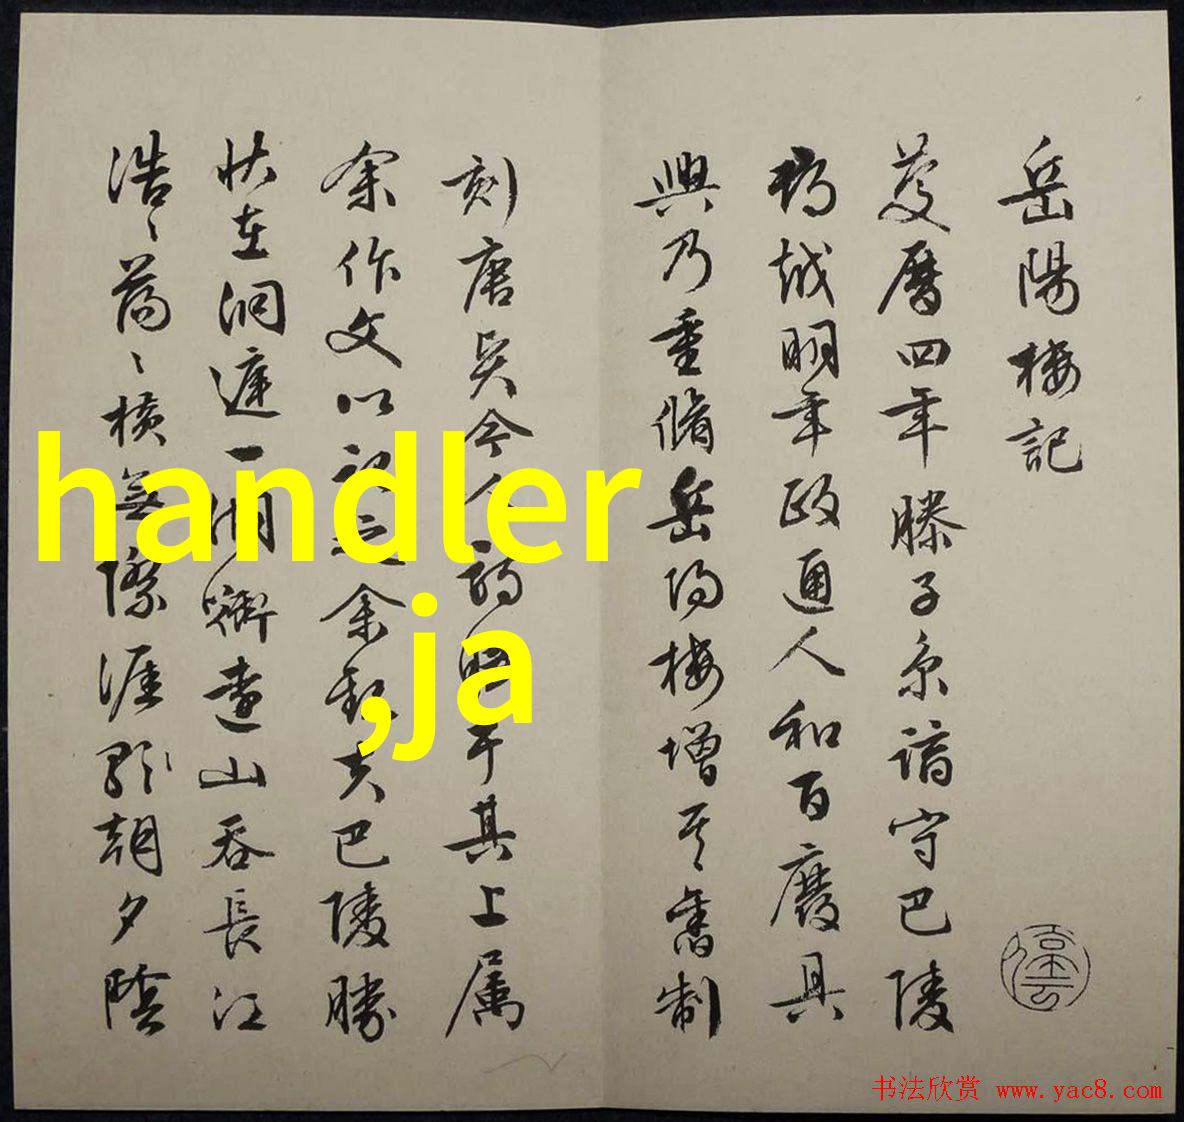 岳陽樓記
慶曆四年滕子京謫守巴陵
郡越明年政通人和百廢具
興乃重脩岳陽樓增其舊制
刻唐賢今人詩賦于其上属
余作文以記之余觀夫巴陵勝
状在洞庭一湖銜遠山吞長江
浩〻蕩〻橫無際涯朝夕陰
handler
,ja
书法欣赏 www.yac8.com